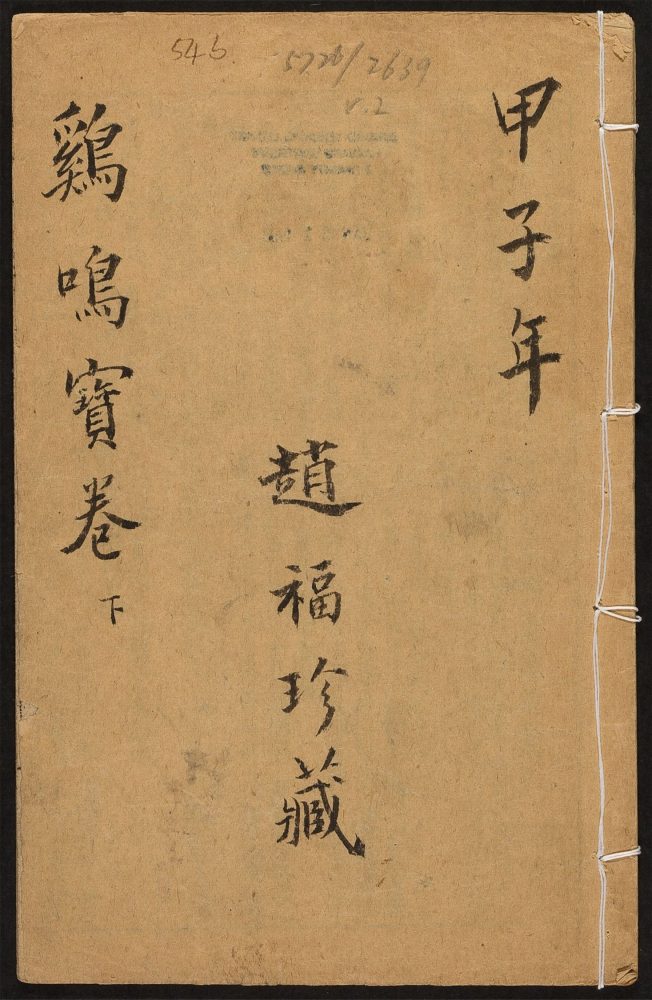 546
5726/2639
v.2
甲子年
趙福珍藏
鷄鳴寶卷下